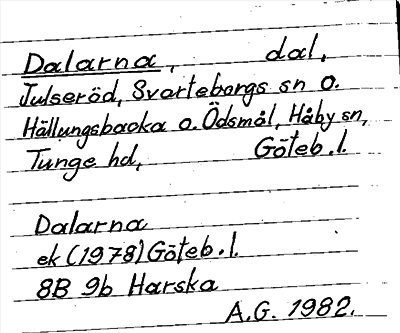 Dalarna, dal,
Julseröd, Svarteborgs sn o.
Hällungsbacka o. Ödsmål, Håby sn,
Tunge hd, Göteb. l.
Dalarna
ek (1978) Göteb. l.
8B 9b Harska
A.G. 1982.